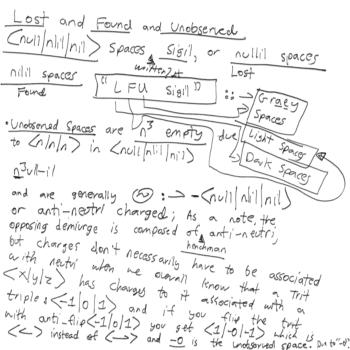 Lost and Found and Unobserved
<null|nlil|nil> Spaces Sigil, or nullil spaces
written at
Lost
nilil spaces
Found
("L FU Sigil")
:: → Graey Spaces
Light Spaces
Dark Spaces
• Unobserved Spaces are n³ empty due
to <n|n|n> in <null|nlil|nil>
n³ull-il
and are generally :→ -<null|nlil|nil>
or anti-neutri charged; As a note, the
opposing demiurge is composed of anti-neutri,
henchman
but charges don't necessarily have to be associated
with neutri when we overall know that a Trit
<x|y|z> has charges to it associated with a
triple: <-1|0|1> and if you flip the trit
with anti-flip <-1|0|1> you get <1|-0|-1> which is
<←→> instead of <←→> and -0 is the unobserved space. Due to "-0".